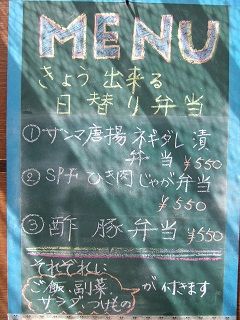 MENU
きょう出来る
日替り弁当
①サンマ唐揚ネギダレ漬
弁当 ¥550
②SPチひき肉じゃが弁当
¥550
③酢豚弁当 ¥550
それぞれに
ご飯、副菜
サラダ、つけもの
が付きます